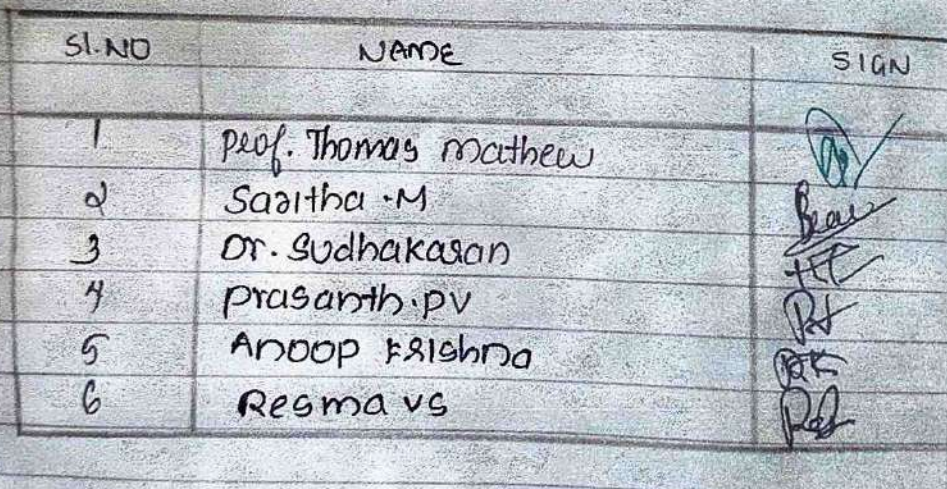 Sl.NO NAME SIGN
1 Prof. Thomas Mathew
2 Saritha .M
3 Dr. Sudhakaran
4 Prasanth.PV
5 Anoop Krishna
6 Resma VS